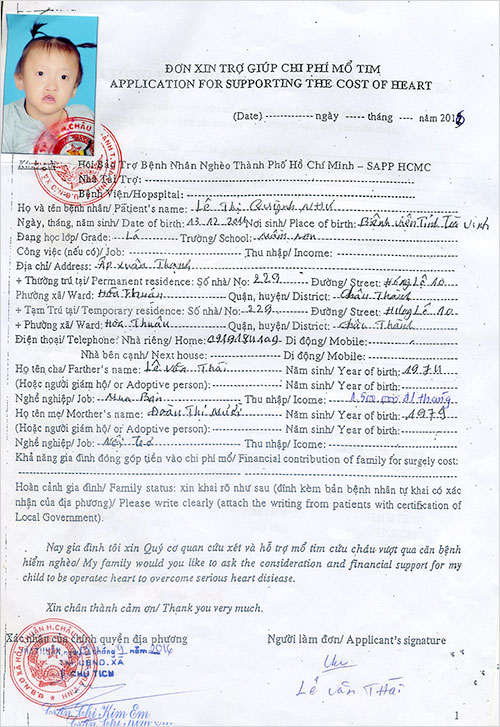 ĐƠN XIN TRỢ GIÚP CHI PHÍ MỔ TIM
APPLICATION FOR SUPPORTING THE COST OF HEART
(Date) ------------ ngày ----- tháng ---- năm 2016
Hội Bảo Trợ Bệnh Nhân Nghèo Thành Phố Hồ Chí Minh – SAPP HCMC
Nhà Tài Trợ:
Bệnh Viện/Hopspital:
Họ và tên bệnh nhân/ Patient's name: Lê Thị Quỳnh Như
Ngày, tháng, năm sinh/ Date of birth: 13.12.2011 Nơi sinh/ Place of birth: Bệnh viện Tỉnh Trà Vinh
Đang học lớp/ Grade: Lá Trường/ School: Mầm non
Công việc (nếu có)/ Job: Thu nhập/ Income:
Địa chỉ/ Address: Ấp Xuân Thạnh
+ Thường trú tại/ Permanent residence: Số nhà/ No: 229 Đường/ Street: Hương Lộ 10
Phường xã/ Ward: Hòa Thuận Quận, huyện/ District: Châu Thành
+ Tạm Trú tại/ Temporary residence: Số nhà/ No: 229 Đường/ Street: Hương Lộ 10.
+ Phường xã/ Ward: Hòa Thuận Quận, huyện/ District: Châu Thành
Điện thoại/ Telephone: Nhà riêng/ Home: Di động/ Mobile:
Nhà bên cạnh/ Next house: Di động/ Mobile:
Họ tên cha/ Farther's name: Lê Văn Thái Năm sinh/ Year of birth: 1974
(Hoặc người giám hộ/ or Adoptive person): Năm sinh/ Year of birth:
Nghề nghiệp/ Job: Mua Bán Thu nhập/ Icome: 1.500.000 đ/tháng
Họ tên mẹ/ Morther's name: Đoàn Thị Mười Năm sinh/ Year of birth: 1979
(Hoặc người giám hộ/ or Adoptive person): Năm sinh/ Year of birth:
Nghề nghiệp/ Job: Nội Trợ Thu nhập/ Icome:
Khả năng gia đình đóng góp tiền vào chi phí mổ/ Financial contribution of family for surgely cost:
Hoàn cảnh gia đình/ Family status: xin khai rõ như sau (đính kèm bản bệnh nhân tự khai có xác
nhận của địa phương)/ Please write clearly (attach the writing from patients with certification of
Local Government).
Nay gia đình tôi xin Quý cơ quan cứu xét và hỗ trợ mổ tim cứu cháu vượt qua căn bệnh
hiểm nghèo/ My family would you like to ask the consideration and financial support for my
child to be operatec heart to overcome serious heart disiease.
Xin chân thành cảm ơn/ Thank you very much.
Xác nhận của chính quyền địa phương Người làm đơn/ Applicant's signature
tháng 9 năm 2016
UBND.XÃ
CHỦ TỊCH
Lê Văn Thái
Trần Thị Kim Em